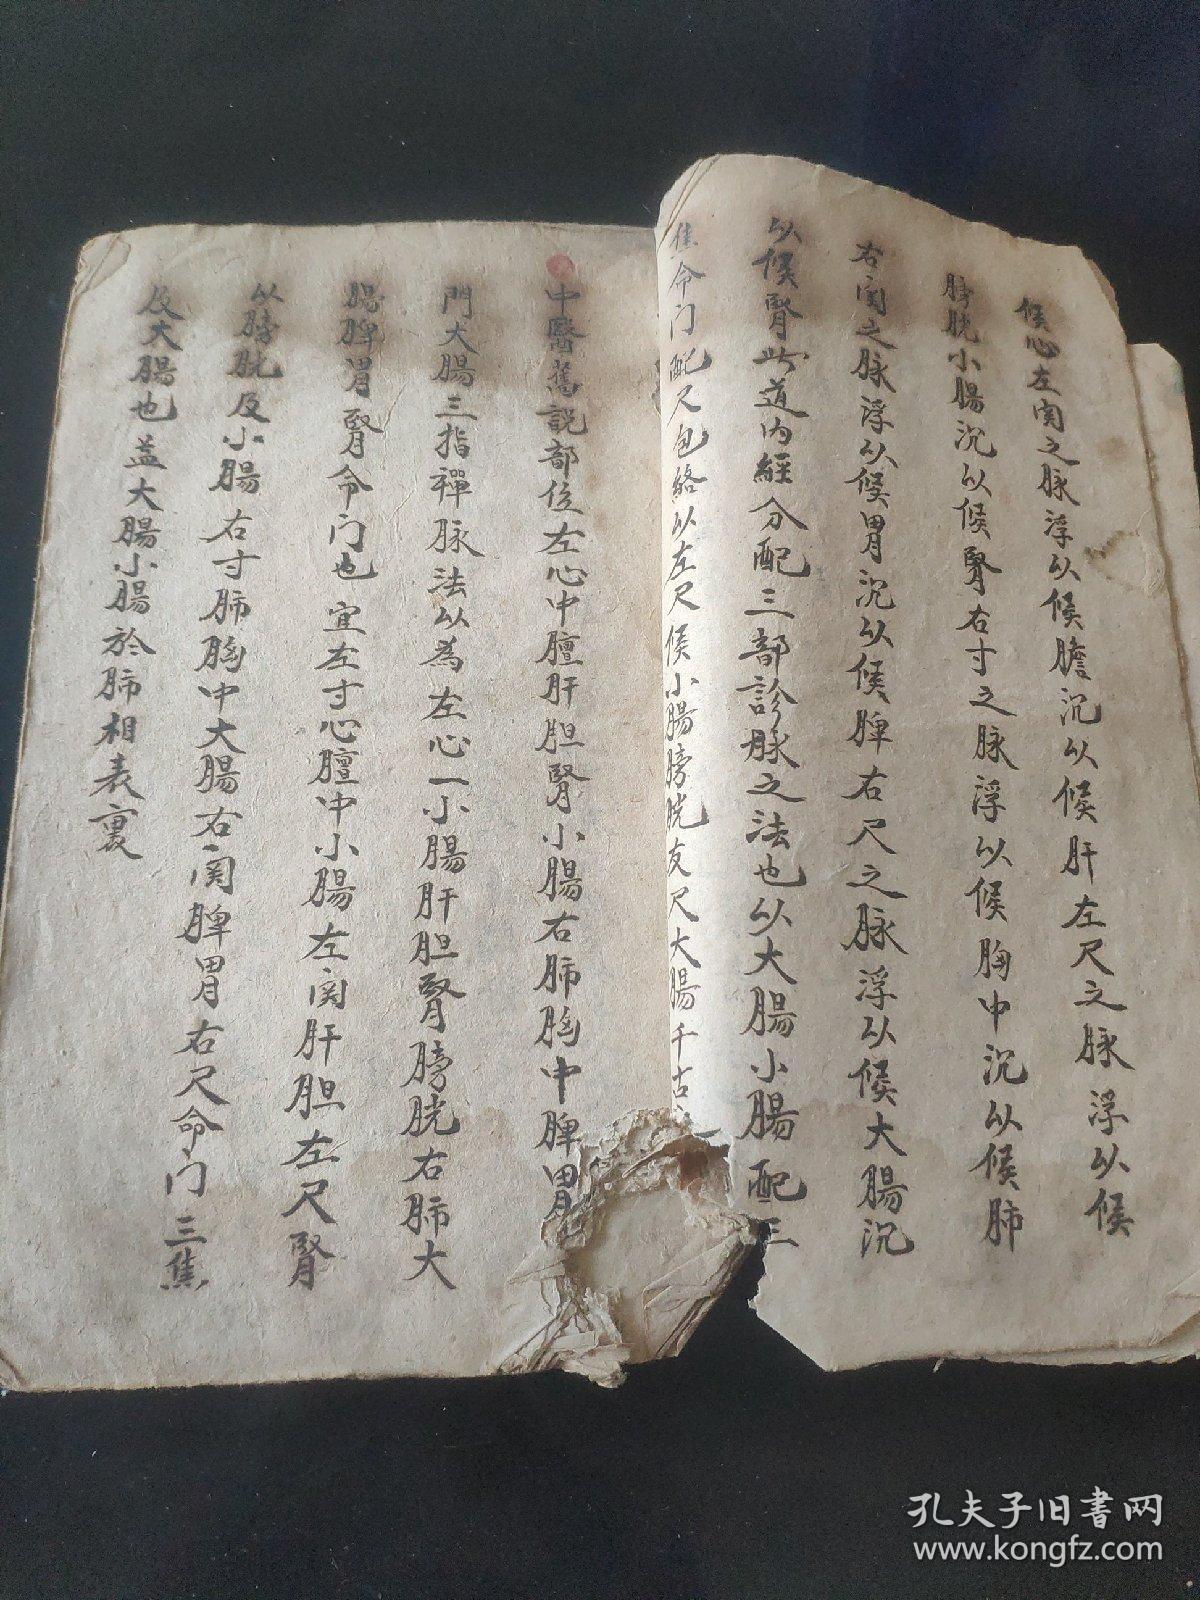 候心左関之脉浮以候膽沉以候肝左尺之脉浮以候
膀胱小腸沉以候腎右寸之脉浮以候胸中沉以候肺
右関之脉浮以候胃沉以候脾右尺之脉浮以候大腸沉
以候腎此道内經分配三部診脉之法也以大腸小腸配三
焦命门配尺包絡以左尺候小腸膀胱友尺大腸千古
中醫舊説部位左心中膻肝胆腎小腸右肺胸中脾胃
門大腸三指禪脉法以為左心一小腸肝胆腎膀胱右肺大
腸脾胃腎命门也宜左寸心膻中小腸左関肝胆左尺腎
以膀胱及小腸右寸肺胸中大腸右関脾胃右尺命门三焦
及大腸也盖大腸小腸於肺相表裏
孔夫子旧书网
www.kongfz.com